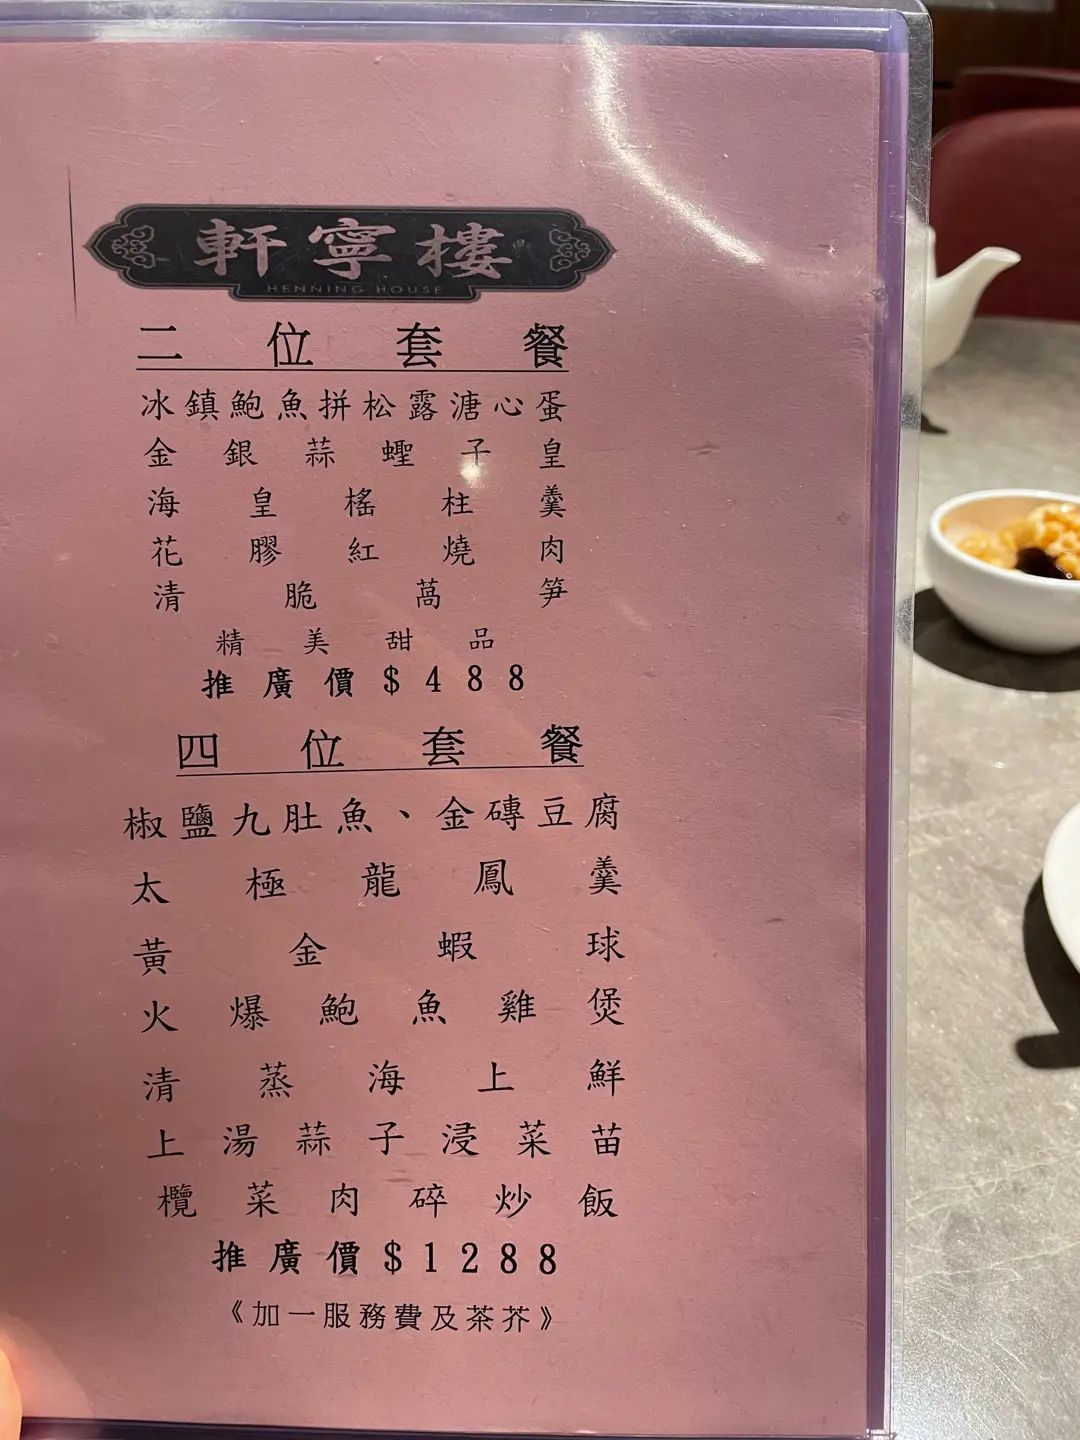 軒寧樓
HENNING HOUSE
二位套餐
冰鎮鮑魚拼松露溏心蛋
金銀蒜蟶子皇
海皇榣柱羹
花膠紅燒肉
清脆萵笋
精美甜品
推廣價$488
四位套餐
椒鹽九肚魚、金磚豆腐
太極龍鳳羹
黃金蝦球
火爆鮑魚雞煲
清蒸海上鮮
上湯蒜子浸菜苗
欖菜肉碎炒飯
推廣價$1288
《加一服務費及茶芥》